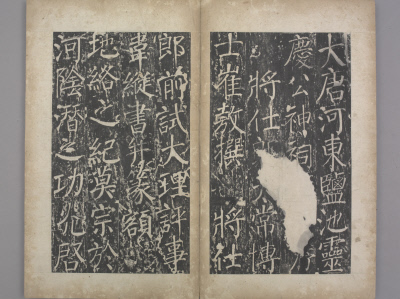 大唐河東鹽池靈
慶公神祠
將仕 常博
士崔敖撰 將仕
郎前試大理評事
韋縱書并篆額
地絡之紀莫宗於
河陰潛之功 啓